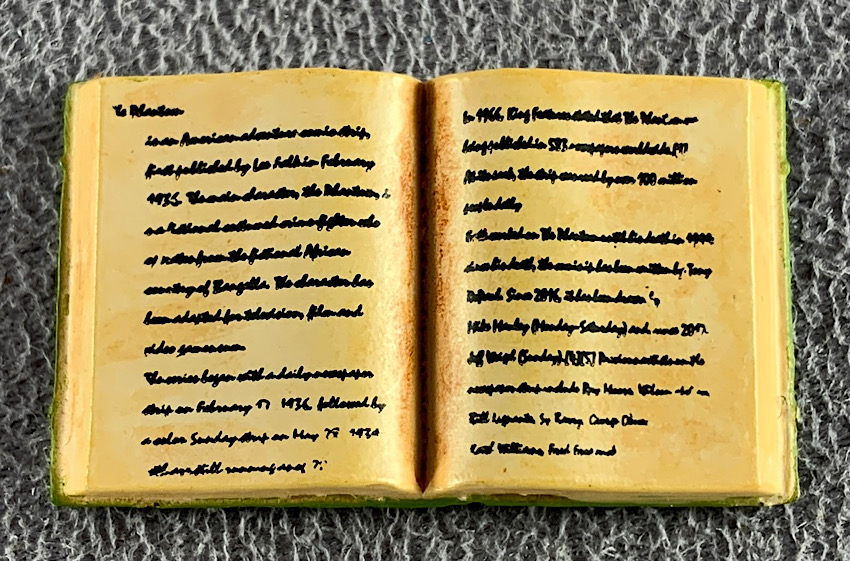 The Phantom
is an American adventure comic strip,
first published by Lee Falk in February
1936. The main character, the Phantom, is
a fictional costumed crime-fighter who
operates from the fictional African
country of Bangalla. The character has
been adapted for television, film and
video games
The series began with a daily newspaper
strip on February 17 1936, followed by
a color Sunday strip on May 28
still running
In 1966, King Features stated that The Phantom was
being published in 583 newspapers worldwide.
At its peak, the strip was read by over 100 million
people daily
Falk worked on The Phantom until his death in 1999;
since his death, the comic strip has been written by Tony
DePaul. Since 2016, it has been drawn by
Mike Manley (Monday-Saturday) and since 2017,
Jeff Weigel (Sunday). Previous artists on the
newspaper strip include Ray Moore, Wilson
Bill Lignante, Sy Barry,
Keith Williams, Fred Fredericks